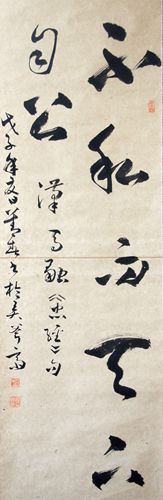 不私而天下
自公 漢馬融《忠經》句
戊子年夏日 於 齋